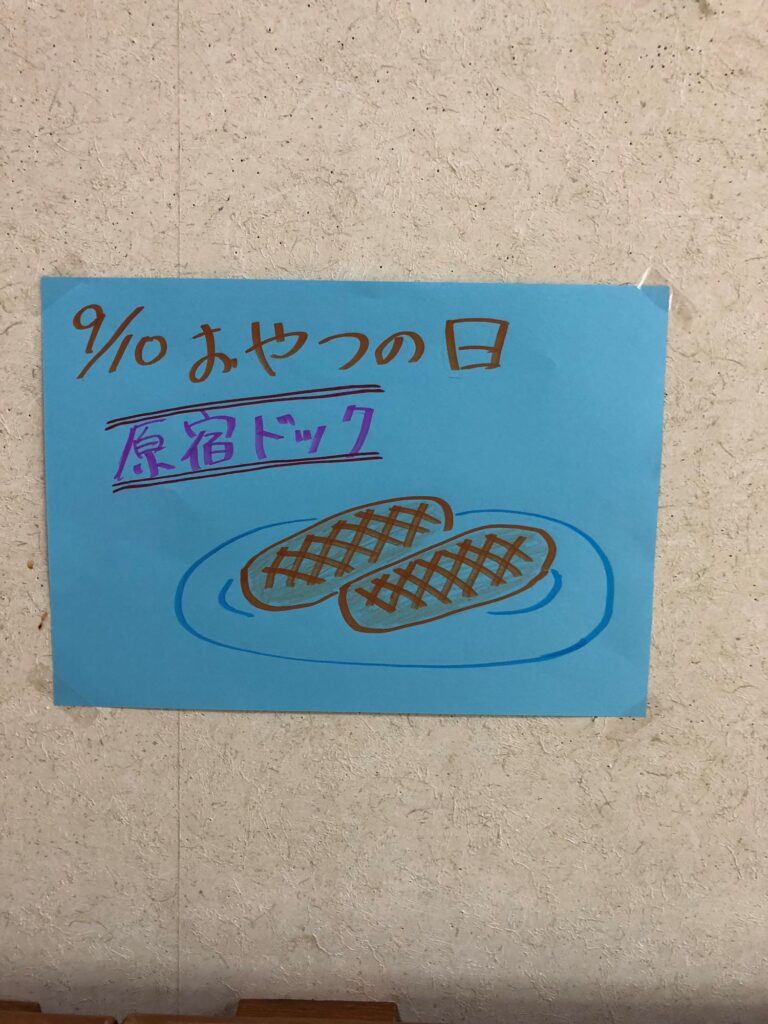 9/10 おやつの日
原宿ドック